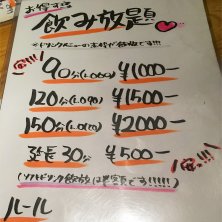 お得する
飲み放題
※ドリンクメニューの本格が飲放です!!!
90分(L.O.20) ¥1000-
120分(L.O.90) ¥1500-
150分(L.O.120) ¥2000-
延長30分 ¥500-
(ソフトドリンク飲放は半額です!!!!!)
ルール